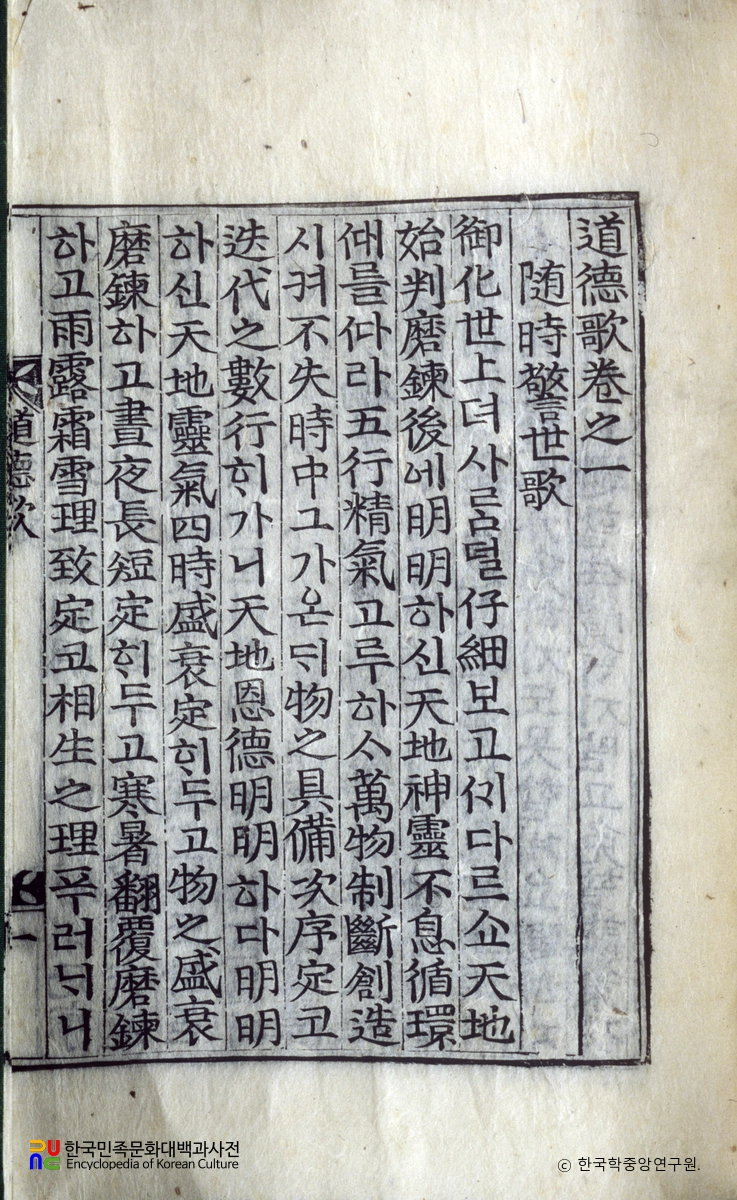 道德歌卷之一
随時警世歌
御化世上뎌사ᄅᆞᆷ덜仔細보고ᄭᆡ다르쇼天地
始判磨鍊後에明明하신天地神靈不息循環
ᄯᅢ를ᄯᅡ라五行精氣고루하ᄉᆞ萬物制斷創造
시켜不失時中그가온ᄃᆡ物之具備次序定고
迭代之數行ᄒᆡ가니天地恩德明明하다明明
하신天地靈氣四時盛衰定ᄒᆡ두고物之盛衰
磨鍊하고晝夜長短定ᄒᆡ두고寒暑翻覆磨鍊
하고雨露霜雪理致定코相生之理푸러ᄂᆡ니
道德歌
一
한국민족문화대백과사전
Encyclopedia of Korean Culture
© 한국학중앙연구원.